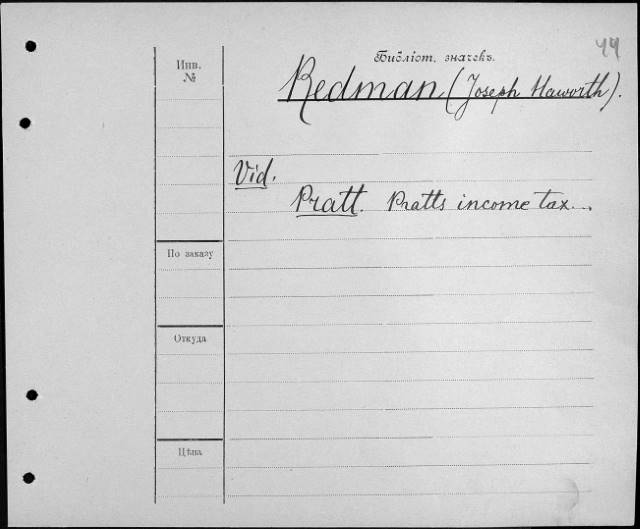 44
Библіот. значекъ.
Инв.
№
Redman (Joseph Haworth).
Vid.
Pratt. Pratts income tax...
По заказу
Откуда
Цѣна